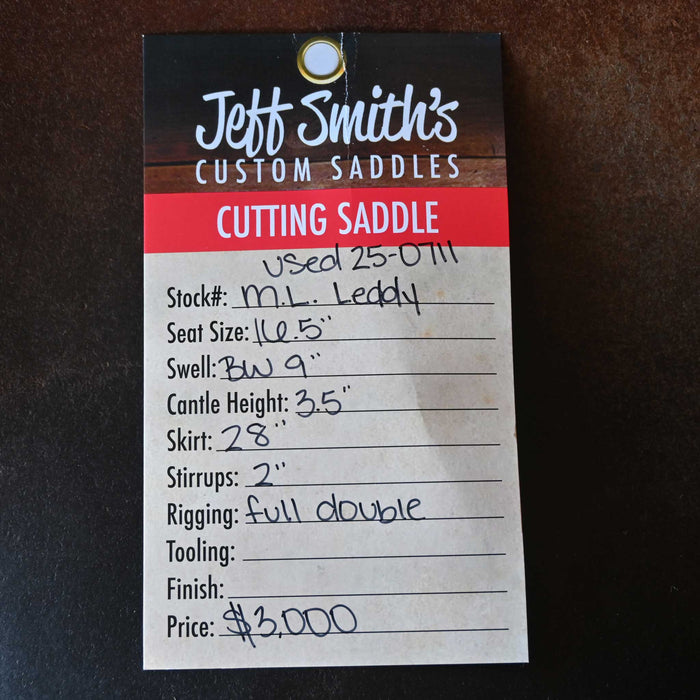 Jeff Smith's
CUSTOM SADDLES
CUTTING SADDLE
used 25-0711
Stock#: M.L. Leddy
Seat Size: 16.5"
Swell: BW 9"
Cantle Height: 3.5"
Skirt: 28"
Stirrups: 2"
Rigging: full double
Tooling:
Finish:
Price: $3,000